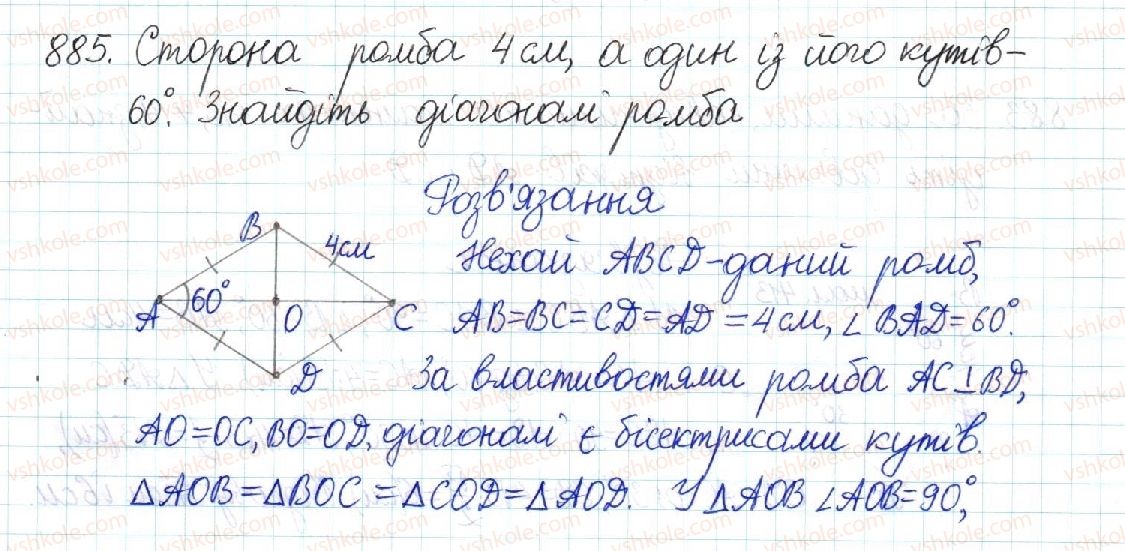 885. Сторона ромба 4 см, а один із його кутів –
60°. Знайдіть діагоналі ромба
Розв'язання
B 4см Нехай ABCD – даний ромб,
A 60° O C AB = BC = CD = AD = 4 см, ∠ BAD = 60°.
D За властивостями ромба AC ⊥ BD,
AO = OC, BO = OD, діагоналі є бісектрисами кутів.
△AOB = △BOC = △COD = △AOD. У △AOB ∠AOB = 90°,